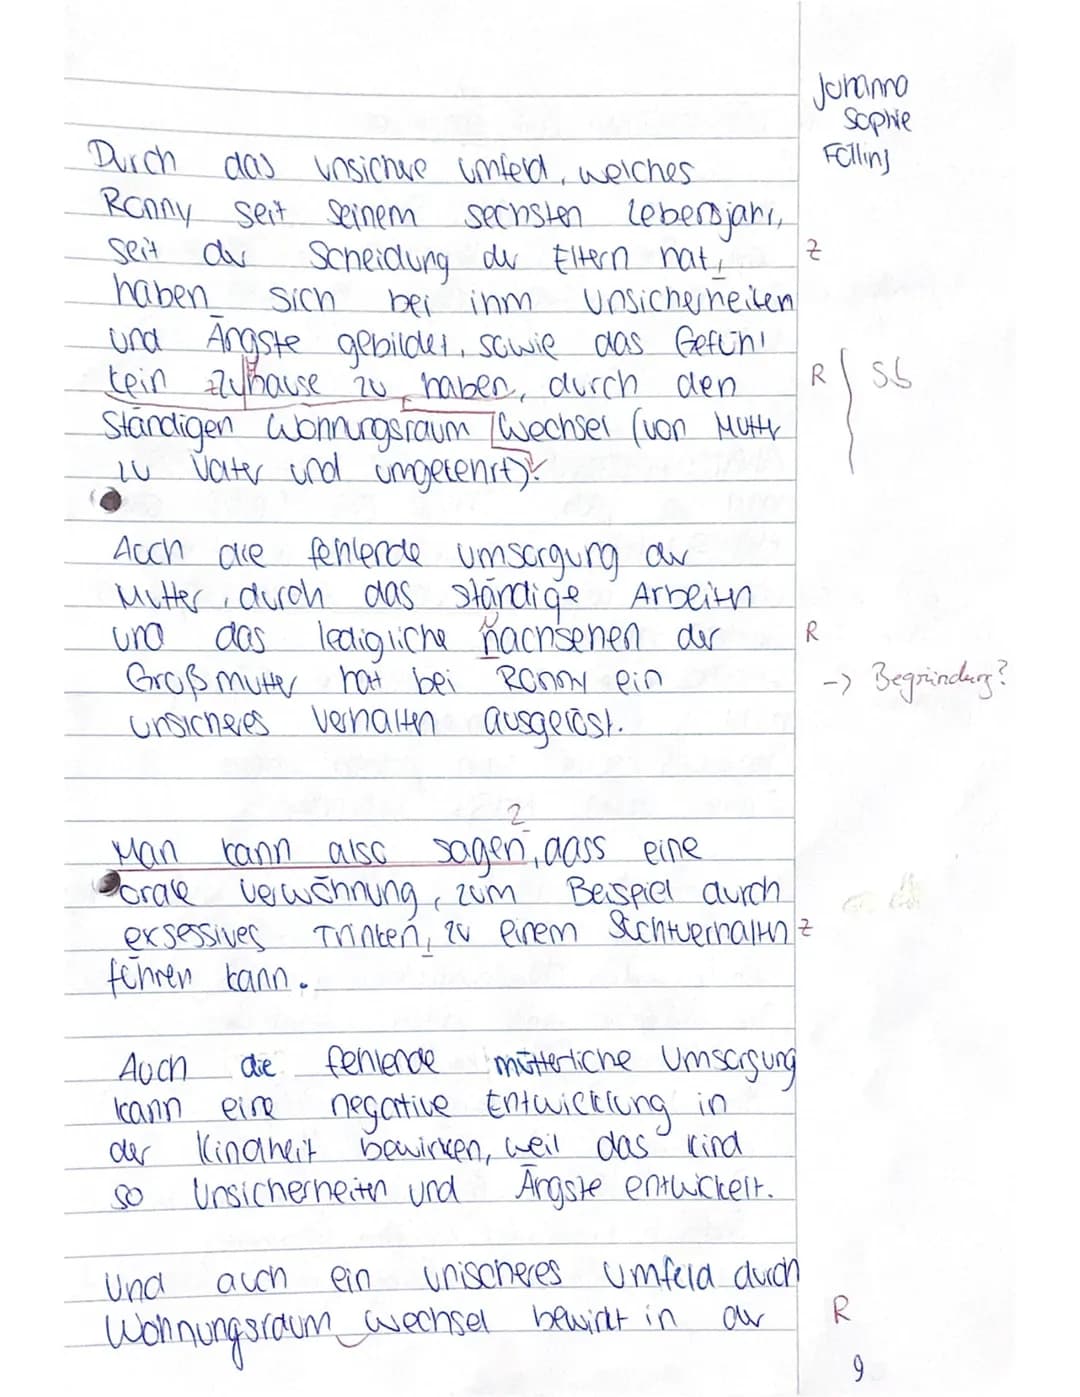 Johanna
Sophie
Fölling
Durch das unsichere Umfeld, welches
Ronny seit seinem sechsten Lebensjahr,
seit der Scheidung der Eltern hat,
Z
haben sich bei ihm Unsicherheiten
und Ängste gebildet, sowie das Gefühl
kein Zuhause zu haben, durch den
R Sb
Ständigen Wohnungsraum Wechsel (von Mutter
zu Vater und umgekehrt).
Auch die fehlende Umsorgung der
Mutter, durch das ständige Arbeiten
und das ledigliche nachsehen der
R
Großmutter hat bei Ronny ein
-> Begründung?
unsicheres Verhalten ausgelöst.
2
Man kann also sagen, dass eine
orale Verwöhnung, zum Beispiel durch
exsessives Trinken, zu einem Suchtverhalten
Z
führen kann.
Auch die fehlende mütterliche Umsorgung
kann eine negative Entwicklung in
der Kindheit bewirken, weil das Kind
so Unsicherheiten und Ängste entwickelt.
Und auch ein unischeres Umfeld durch
Wohnungsraum wechsel bewirkt in der
R
9